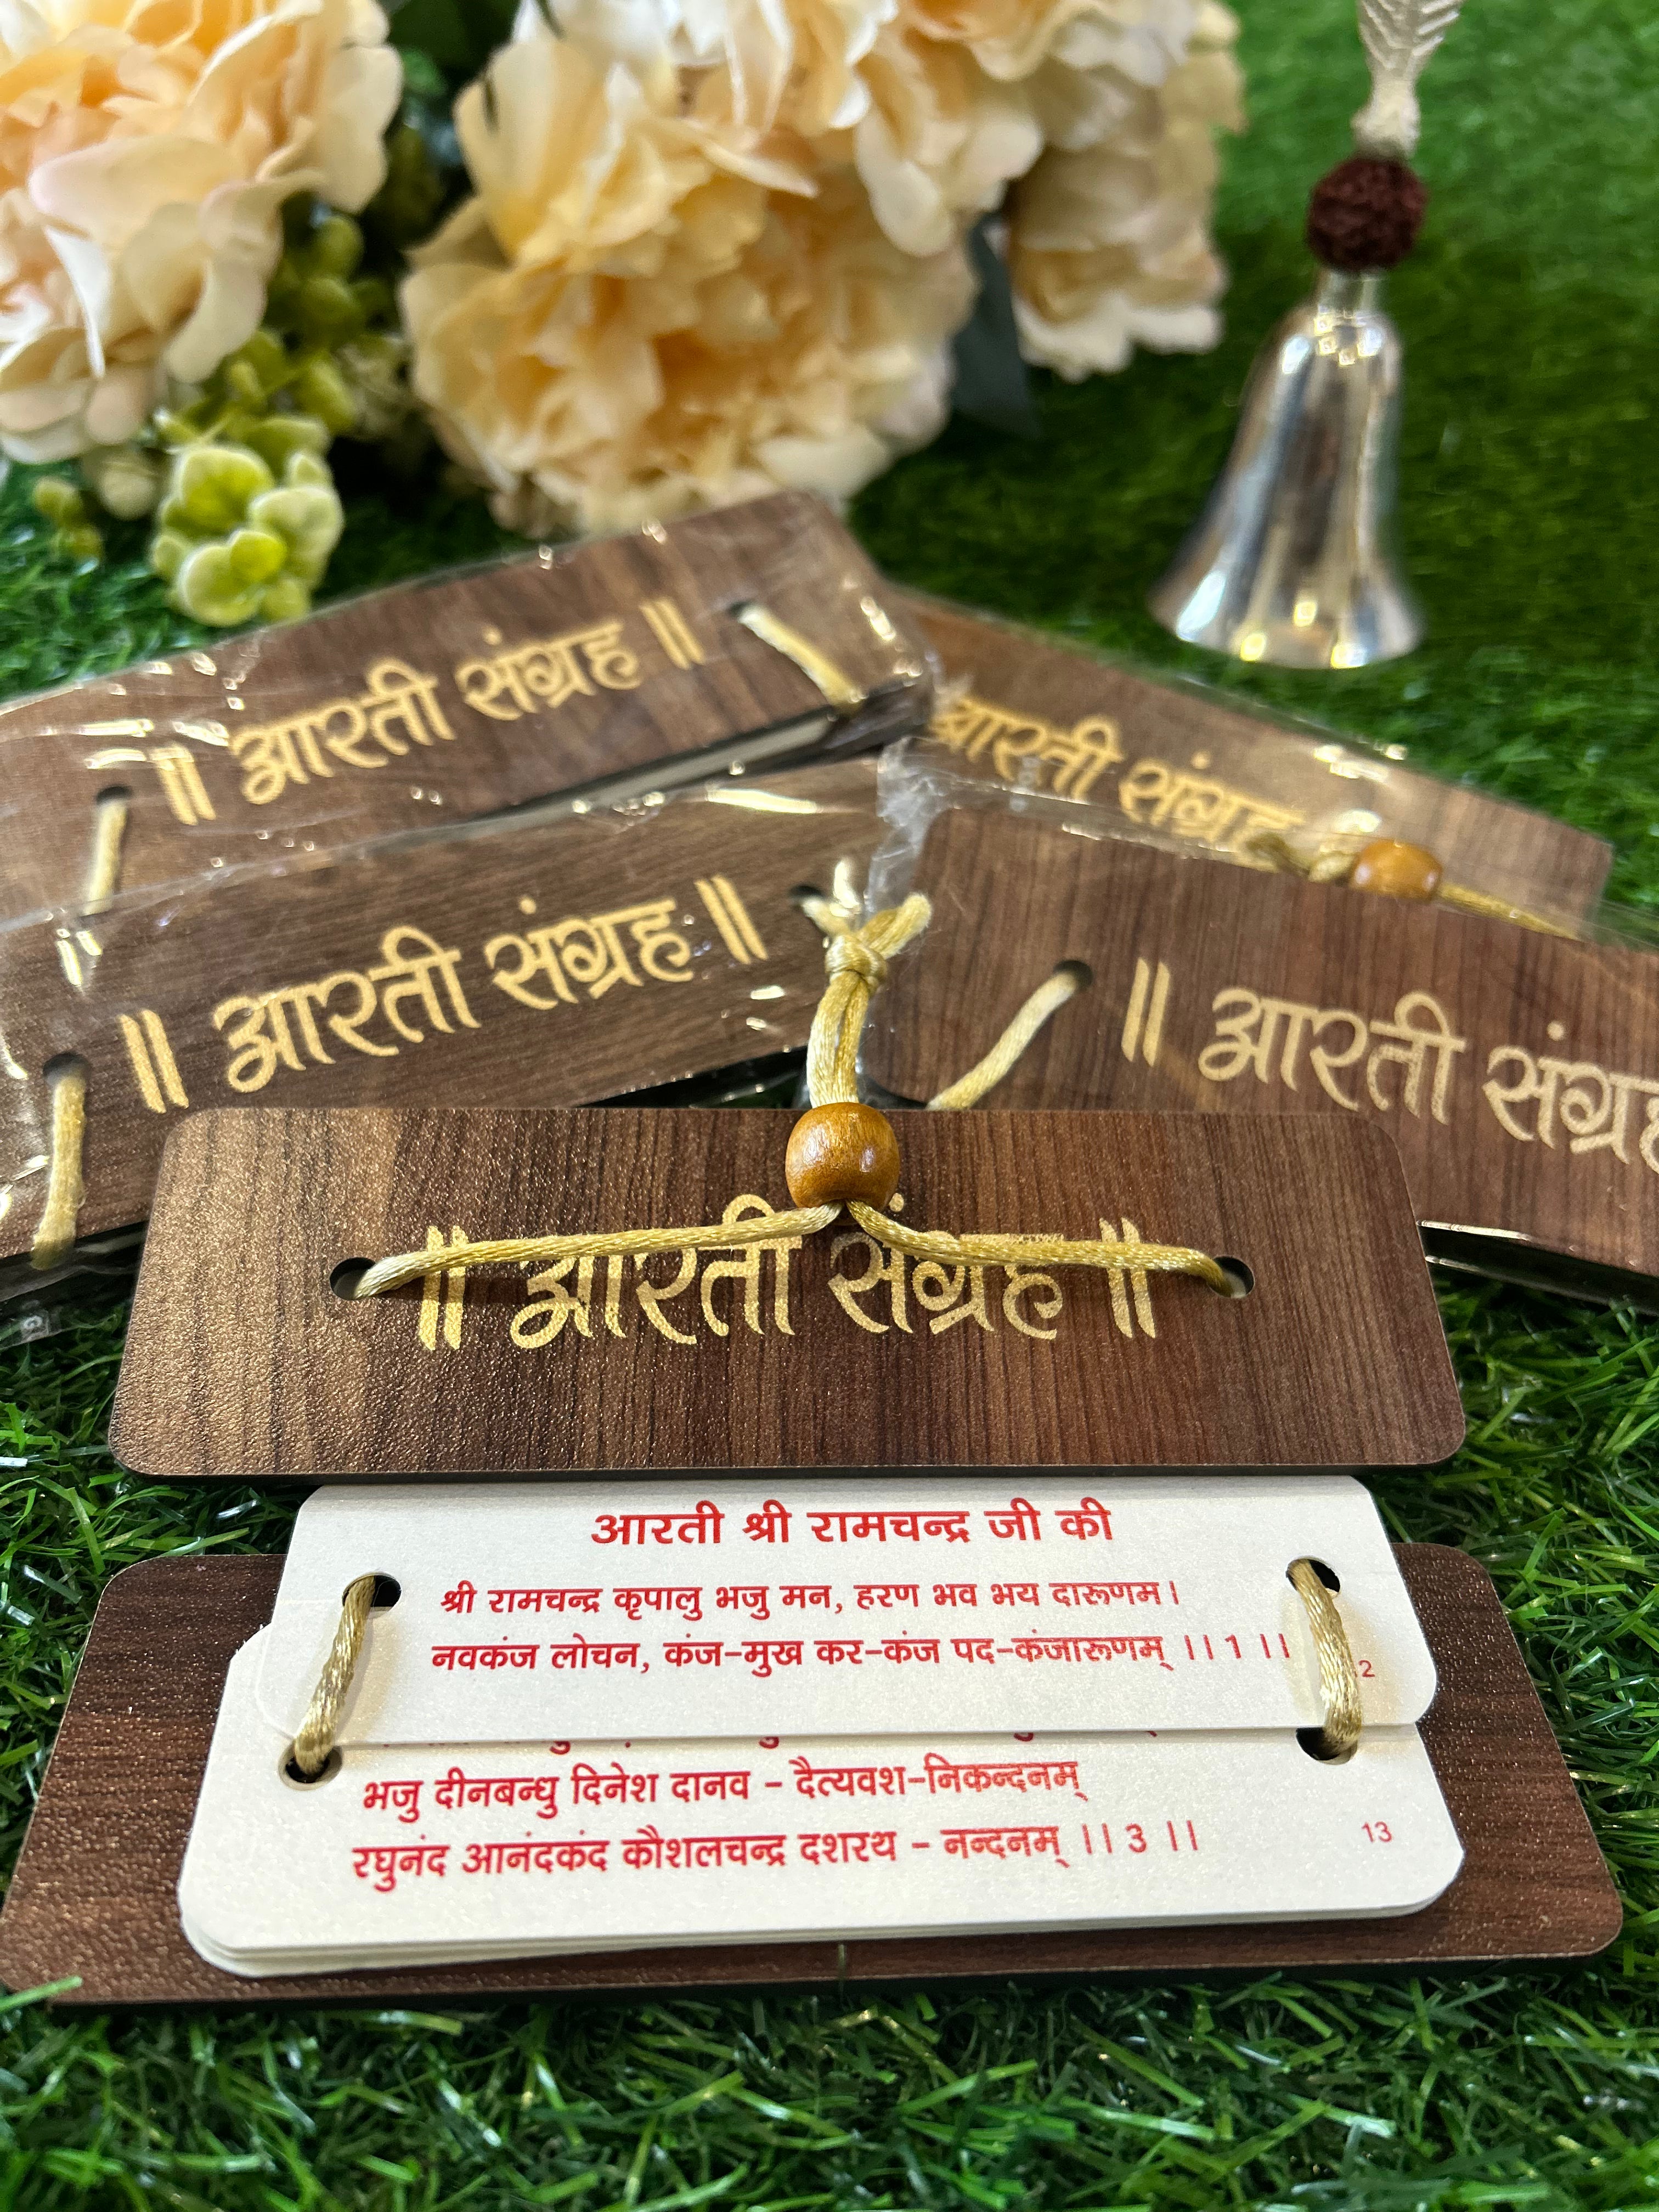 ॥ आरती संग्रह ॥
आरती संग्रह
॥ आरती संग्रह ॥
॥ आरती संग्रह
॥ आरती संग्रह ॥
आरती श्री रामचन्द्र जी की
श्री रामचन्द्र कृपालु भजु मन, हरण भव भय दारूणम।
नवकंज लोचन, कंज-मुख कर-कंज पद-कंजारूणम् ।। 1 ।।
भजु दीनबन्धु दिनेश दानव - दैत्यवश-निकन्दनम्
रघुनंद आनंदकंद कौशलचन्द्र दशरथ - नन्दनम् ।। 3 ।।
13